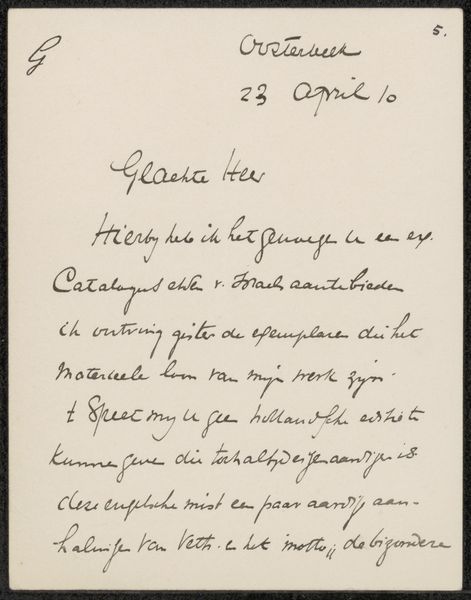 G
5.
Oosterbeek
23 April 10
Geachte Heer
Hierby heb ik het genoegen U een ex.
Catalogus etsen v. Israels aantebieden
ik ontving gister de exemplaren die het
Materieele loon van mijn werk zijn.
't Speet my U geen hollandsche editie te
kunnen geven die toch altyd eigenaardiger is
deze engelsche mist een paar aardige aan-
halingen van Veth. en het motto „de bizondere